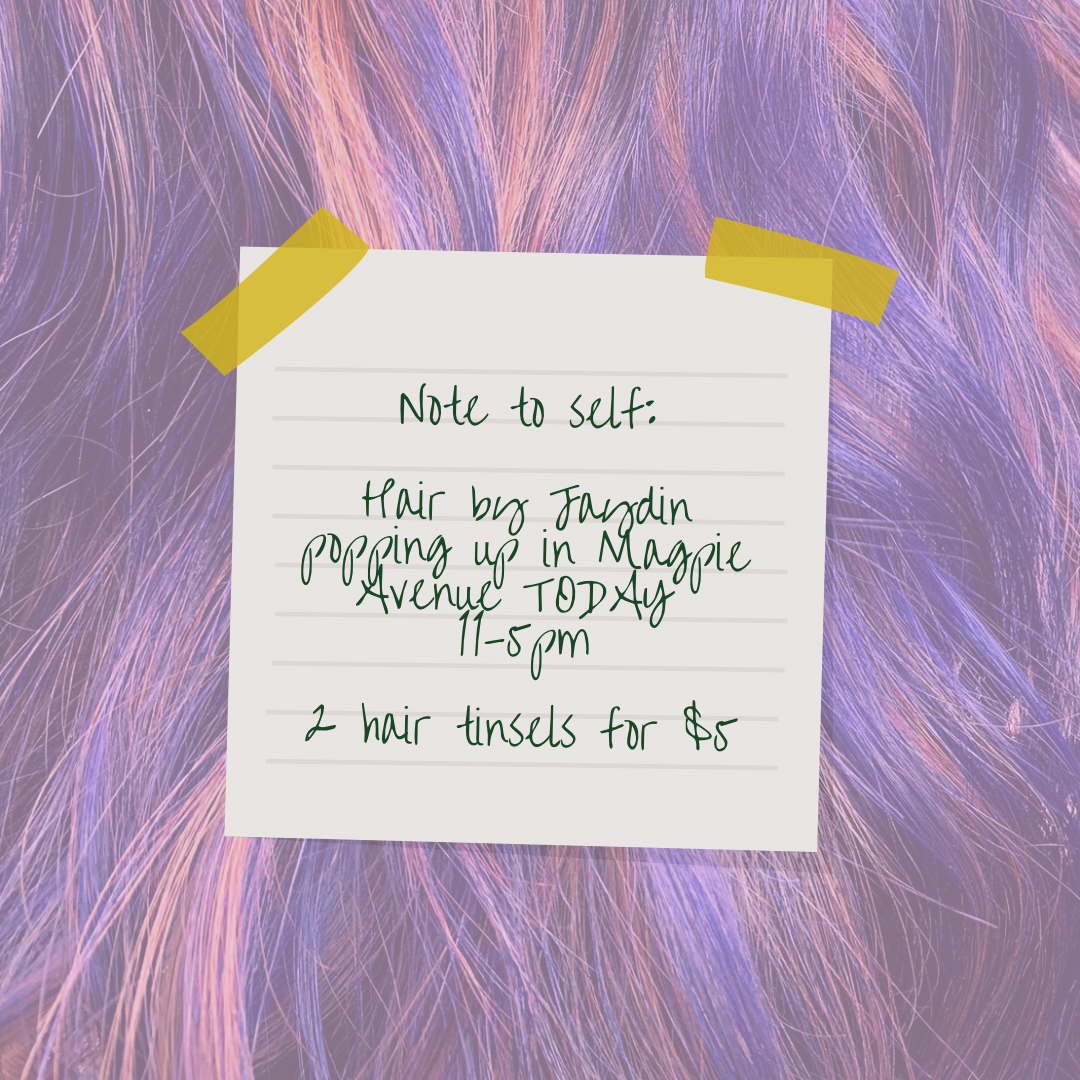 Note to self:
Hair by Jaydin
popping up in Magpie
Avenue TODAY
11-5pm
2 hair tinsels for $5